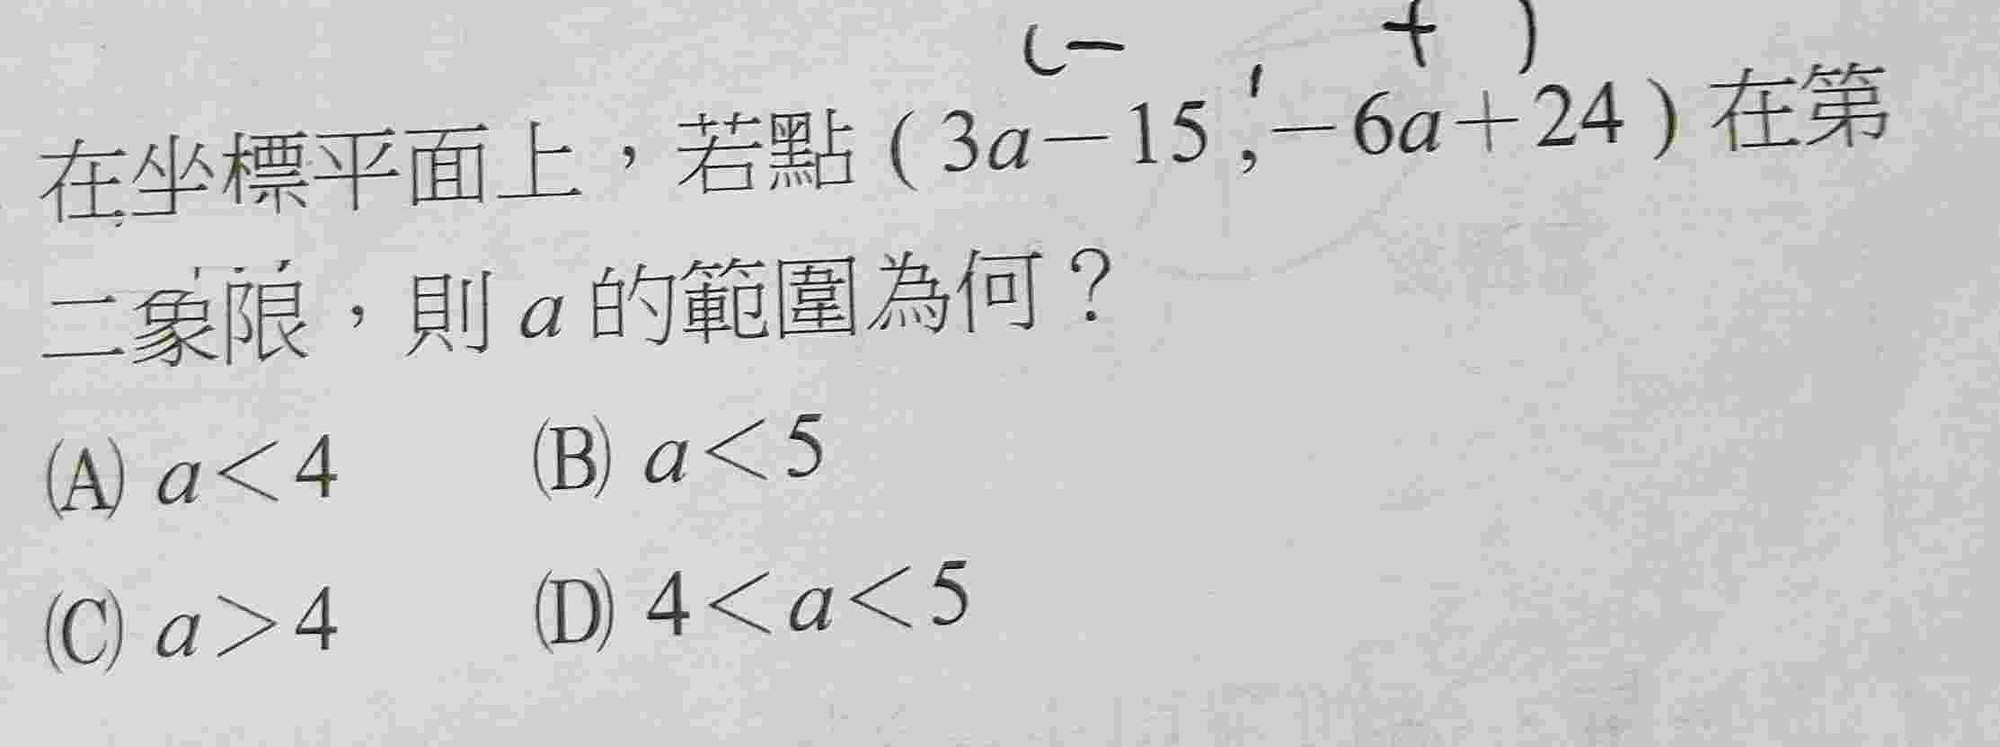 (－ , ＋ )
在坐標平面上，若點（3a－15，－6a＋24）在第
二象限，則 a 的範圍為何？
(A) a＜4 (B) a＜5
(C) a＞4 (D) 4＜a＜5